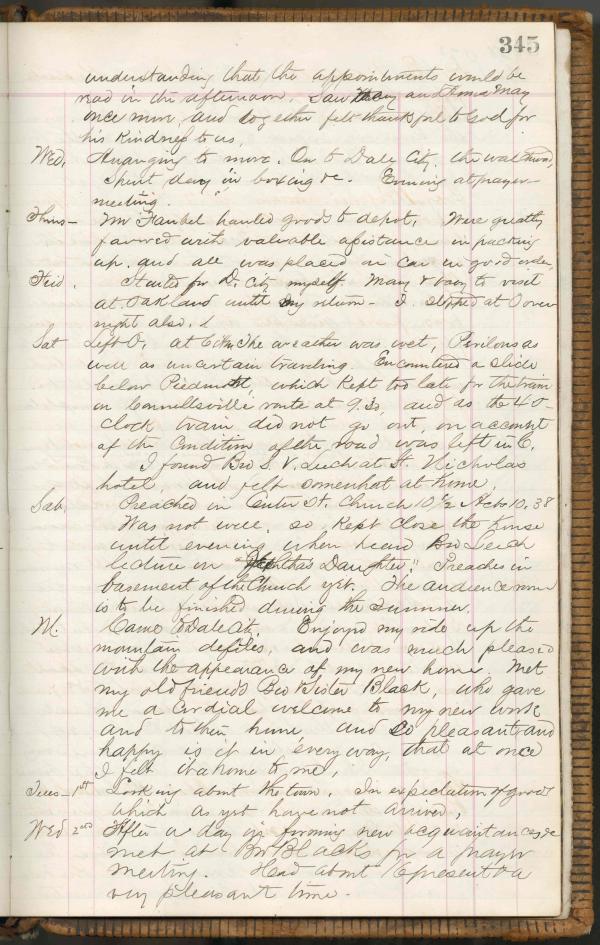 345
understanding that the appointments would be
read in the afternoon. Saw and Anna May
once more, and together felt thankful to God for
his kindness to us.
Wed. Arranging to move. On to Dale City, the
Spent day in boxing &c. Evening at prayer-
meeting.
Thurs- Mr Faubel hauled goods to depot. Were greatly
favored with valuable assistance in packing
up. and all was placed in car in good order.
Frid. Started for D. City myself. Mary & to visit
at Oakland until my return - I stopped at O over
night also.
Sat Left O. at 6 The weather was wet, Perilous as
well as uncertain traveling. Encountered a slide
below Piedmont, which kept too late for the train
on Connellsville route at 9.30, and as the 4 O-
clock train did not go out, on account
of the Condition of the road was left in C.
I found Bro S. V. Leech at St. Nicholas
hotel, and felt somewhat at home.
Sab. Preached in Center St. Church 10 1/2 Acts 10.38
Was not well, so kept close the house
until evening when heard Bro Leech
lecture on "Jephthas Daughter." Preaches in
basement of the Church yet. The audience room
is to be finished during the Summer.
M. Came to Dale City. Enjoyed my ride up the
mountain defiles, and was much pleased
with the appearance of my new home. Met
my old friends Bro & Sister Black, who gave
me a Cordial welcome to my new work
and to their home and so pleasant and
happy is it in every way, that at once
I felt it a home to me.
Tues- 1st Looking about the town. In expectation of goods
which as yet have not arrived.
Wed 2nd After a day in forming new acquaintances &c
met at Bro Blacks for a prayer
meeting. Had about present & a
very pleasant time.